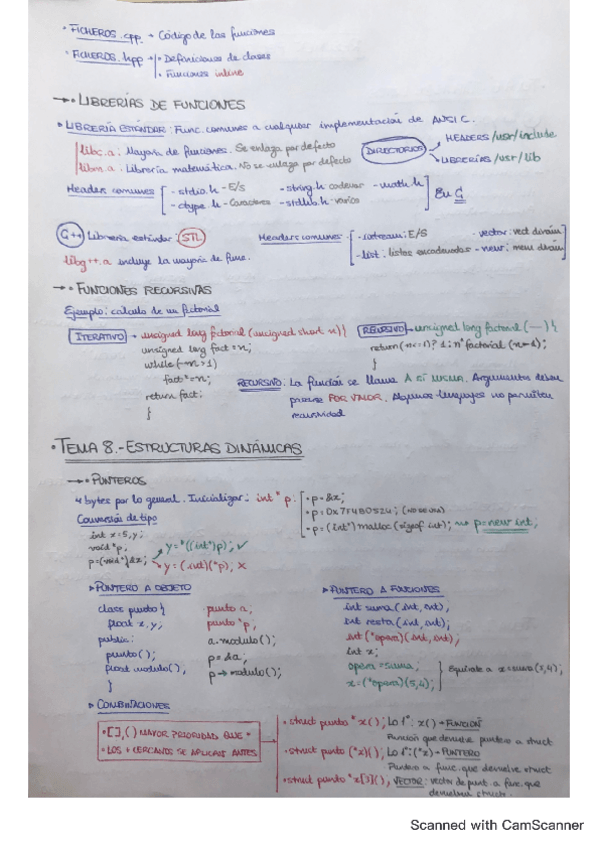 • FICHEROS .cpp → Código de las funciones
• FICHEROS .hpp → • Definiciones de clases
• Funciones inline
→ • LIBRERÍAS DE FUNCIONES
• LIBRERÍA ESTÁNDAR: Func. comunes a cualquier implementación de ANSI C.
libc.a: Mayoría de funciones. Se enlaza por defecto
libm.a: Librería matemática. No se enlaza por defecto
DIRECTORIOS
HEADERS /usr/include
LIBRERÍAS /usr/lib
Header comunes
- stdio.h - E/S
- string.h cadenas
- math.h
- ctype.h - Caracteres
- stdlib.h - varios
En C
G++ Librería estándar: STL
libg++.a incluye la mayoría de func.
Headers comunes
- iostream: E/S
- vector: vect dinám
- list: listas encadenadas
- new: mem dinám
→ • FUNCIONES RECURSIVAS
Ejemplo: calculo de un factorial
ITERATIVO → unsigned long factorial (unsigned short n){
unsigned long fact = n;
while (--n > 1)
fact *= n;
return fact;
}
RECURSIVO → unsigned long factorial (—) {
return (n<=1)? 1: n*factorial (n-1);
}
RECURSIVO: La función se llama A SÍ MISMA. Argumentos deben
pasarse POR VALOR. Algunos lenguajes no permiten
recursividad
• TEMA 8.- ESTRUCTURAS DINÁMICAS
→ • PUNTEROS
4 bytes por lo general. Inicializar: int * p.
• p = &x;
• p = 0x7F4B0524; (no se usa)
• p = (int*) malloc (sizeof int); → p = new int;
Conversión de tipo
int x=5, y;
void *p,
p=(void*)&x;
y = *((int*)p); ✓
y = (int)(*p); ✗
▹ PUNTERO A OBJETO
class punto {
float x, y;
public:
punto();
float modulo();
}
punto a;
punto *p;
a.modulo();
p = &a;
p → modulo();
▹ PUNTERO A FUNCIONES
int suma (int, int);
int resta (int, int);
int (*opera)(int, int);
int x;
opera = suma;
x = (*opera)(5,4);
Equivale a x = suma (5,4);
▹ COMBINACIONES
• [ ], ( ) MAYOR PRIORIDAD QUE *
• LOS + CERCANOS SE APLICAN ANTES
• struct punto *x(); Lo 1º: x() → FUNCIÓN
Función que devuelve puntero a struct
• struct punto (*x)(); Lo 1º: (*x) → PUNTERO
Puntero a func. que devuelve struct
• struct punto *x[3](), VECTOR: vector de punt. a func. que
devuelven struct.
Scanned with CamScanner